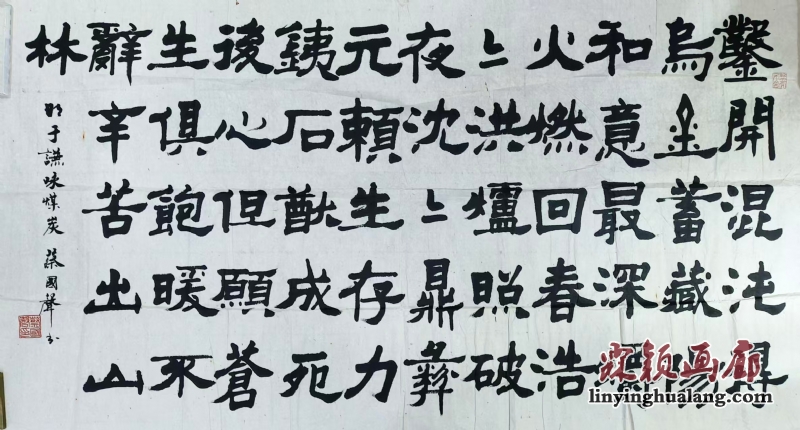 鑿開混沌得
烏金蓄藏陽
和意最深爝
火燃回春浩
〻洪爐照破
夜沈〻鼎彝
元賴生存力
銕石猷成死
後心但願蒼
生俱飽暖不
辭辛苦出山
林
明于謙咏煤炭 蔡國聲书
临颍画廊
linyinghualang.com